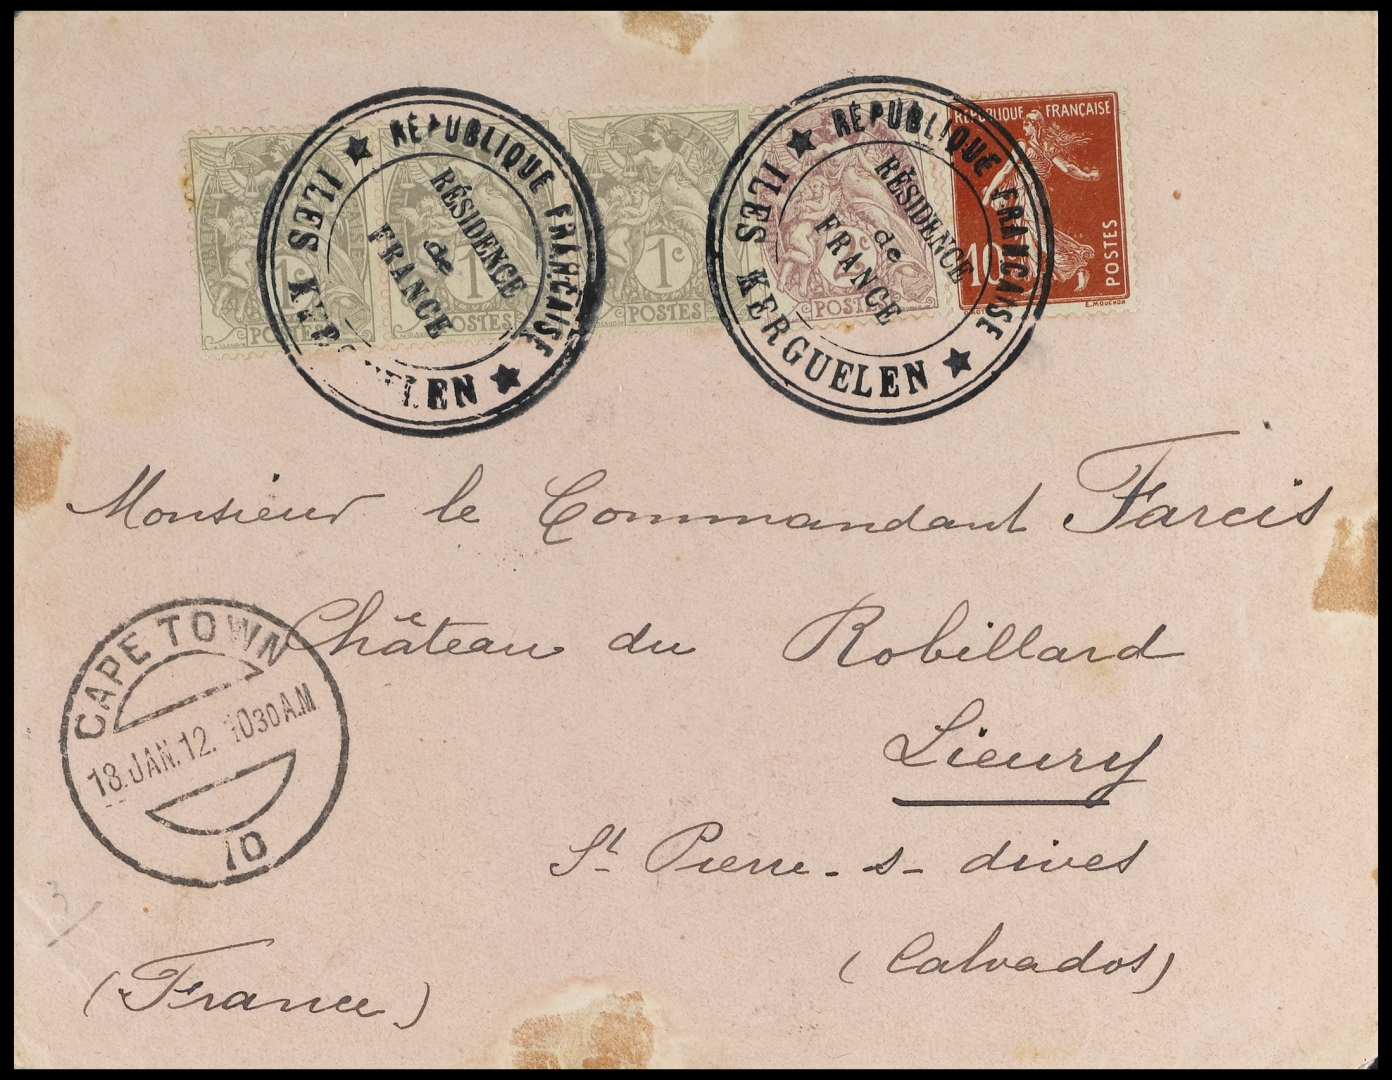 RÉPUBLIQUE FRANÇAISE
ILES KERGUELEN
RÉSIDENCE
de
FRANCE
RÉPUBLIQUE FRANÇAISE
ILES KERGUELEN
RÉSIDENCE
de
FRANCE
1c
POSTES
1
POSTES
1c
POSTES
POSTES
REPUBLIQUE FRANÇAISE
10
POSTES
E. MOUCHON
Monsieur le Commandant Farcis
Château du Robillard
Lieury
St Pierre-s-dives
(Calvados)
(France)
CAPE TOWN
18.JAN.12. 1030A.M
10
3